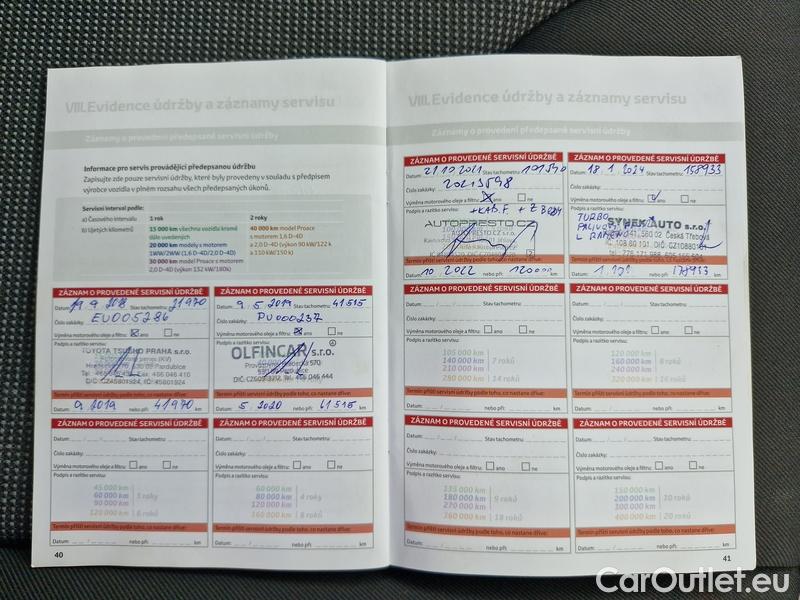 VIII. Evidence údržby a záznamy servisu
Záznamy o provedení předepsané servisní údržby
Informace pro servis provádějící předepsanou údržbu
Zapisujte zde pouze servisní údržby, které byly provedeny v souladu s předpisem
výrobce vozidla v plném rozsahu všech předepsaných úkonů.
Servisní interval podle:
a) Časového intervalu 1 rok 2 roky
b) Ujetých kilometrů 15 000 km všechna vozidla kromě 40 000 km model Proace
dále uvedených s motorem 1,6 D-4D
20 000 km modely s motorem a 2,0 D-4D (výkon 90 kW/122 k
1WW/2WW (1,6 D-4D/2,0 D-4D) a 110 kW/150 k)
30 000 km model Proace s motorem
2,0 D-4D (výkon 132 kW/180k)
ZÁZNAM O PROVEDENÉ SERVISNÍ ÚDRŽBĚ
Datum: 19 9 2018 Stav tachometru: 21970
Číslo zakázky: EU005286
Výměna motorového oleje a filtru: ano ne
Podpis a razítko:
TOYOTA TSUSHO PRAHA s.r.o.
Termín příští servisní údržby podle toho, co nastane dříve:
Datum: 9 2019 nebo při: 41970 km
ZÁZNAM O PROVEDENÉ SERVISNÍ ÚDRŽBĚ
Datum: 9. 5. 2019 Stav tachometru: 41515
Číslo zakázky: PU000237
Výměna motorového oleje a filtru: ano ne
Podpis a razítko:
OLFINCAR s.r.o.
Termín příští servisní údržby podle toho, co nastane dříve:
Datum: 5 2020 nebo při: 61515 km
ZÁZNAM O PROVEDENÉ SERVISNÍ ÚDRŽBĚ
Datum: Stav tachometru: km
Číslo zakázky:
Výměna motorového oleje a filtru: ano ne
Podpis a razítko:
45 000 km
60 000 km 3 roky
90 000 km
120 000 km 6 roků
Termín příští servisní údržby podle toho, co nastane dříve:
Datum: nebo při: km
ZÁZNAM O PROVEDENÉ SERVISNÍ ÚDRŽBĚ
Datum: Stav tachometru: km
Číslo zakázky:
Výměna motorového oleje a filtru: ano ne
Podpis a razítko:
60 000 km
80 000 km 4 roky
120 000 km
160 000 km 8 roků
Termín příští servisní údržby podle toho, co nastane dříve:
Datum: nebo při: km
40
VIII. Evidence údržby a záznamy servisu
Záznamy o provedení předepsané servisní údržby
ZÁZNAM O PROVEDENÉ SERVISNÍ ÚDRŽBĚ
Datum: 21 10 2021
Číslo zakázky: 20213598
Výměna motorového oleje a filtru: ano ne
Podpis a razítko: +KAB.F.
AUTOPRESTO.CZ
AUTOPRESTO CZ s.r.o.
Termín příští servisní údržby podle toho, co nastane dříve:
Datum: 10. 2022 nebo při: 120000 km
ZÁZNAM O PROVEDENÉ SERVISNÍ ÚDRŽBĚ
Datum: 18. 1. 2024 158933
Číslo zakázky:
Výměna motorového oleje a filtru: ano ne
Podpis a razítko:
TURBO
SYNEK AUTO s.r.o.
560 02 Česká Třebová
Termín příští servisní údržby podle toho, co nastane dříve:
Datum: nebo při: km
ZÁZNAM O PROVEDENÉ SERVISNÍ ÚDRŽBĚ
Datum: Stav tachometru: km
Číslo zakázky:
Výměna motorového oleje a filtru: ano ne
Podpis a razítko:
105 000 km
140 000 km 7 roků
210 000 km
280 000 km 14 roků
Termín příští servisní údržby podle toho, co nastane dříve:
Datum: nebo při: km
ZÁZNAM O PROVEDENÉ SERVISNÍ ÚDRŽBĚ
Datum: Stav tachometru: km
Číslo zakázky:
Výměna motorového oleje a filtru: ano ne
Podpis a razítko:
120 000 km
160 000 km 8 roků
240 000 km
320 000 km 16 roků
Termín příští servisní údržby podle toho, co nastane dříve:
Datum: nebo při: km
ZÁZNAM O PROVEDENÉ SERVISNÍ ÚDRŽBĚ
Datum: Stav tachometru: km
Číslo zakázky:
Výměna motorového oleje a filtru: ano ne
Podpis a razítko:
135 000 km
180 000 km 9 roků
270 000 km
360 000 km 18 roků
Termín příští servisní údržby podle toho, co nastane dříve:
Datum: nebo při: km
ZÁZNAM O PROVEDENÉ SERVISNÍ ÚDRŽBĚ
Datum: Stav tachometru: km
Číslo zakázky:
Výměna motorového oleje a filtru: ano ne
Podpis a razítko:
150 000 km
200 000 km 10 roků
300 000 km
400 000 km 20 roků
Termín příští servisní údržby podle toho, co nastane dříve:
Datum: nebo při: km
41
CarOutlet.eu